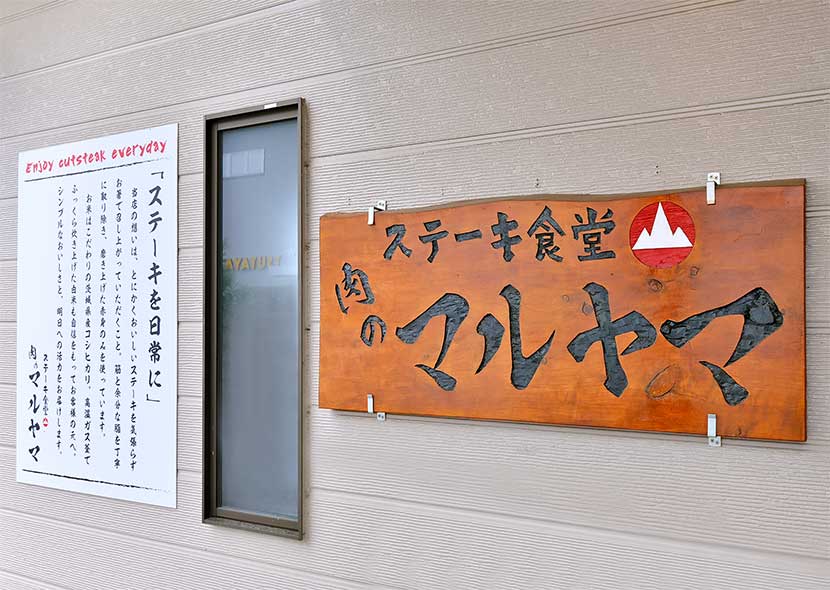 Enjoy cutsteak everyday
「ステーキを日常に」
当店の想いは、とにかくおいしいステーキを気張らず
お箸で召し上がっていただくこと。筋と余分な脂を丁寧
に取り除き、磨き上げた赤身のみを使っています。
お米はこだわりの茨城県産コシヒカリ。高温ガス釜で
ふっくら炊き上げた白米も自信をもってお客様の元へ。
シンプルなおいしさと、明日への活力をお届けします。
ステーキ食堂
肉のマルヤマ
ステーキ食堂
肉の
マルヤマ